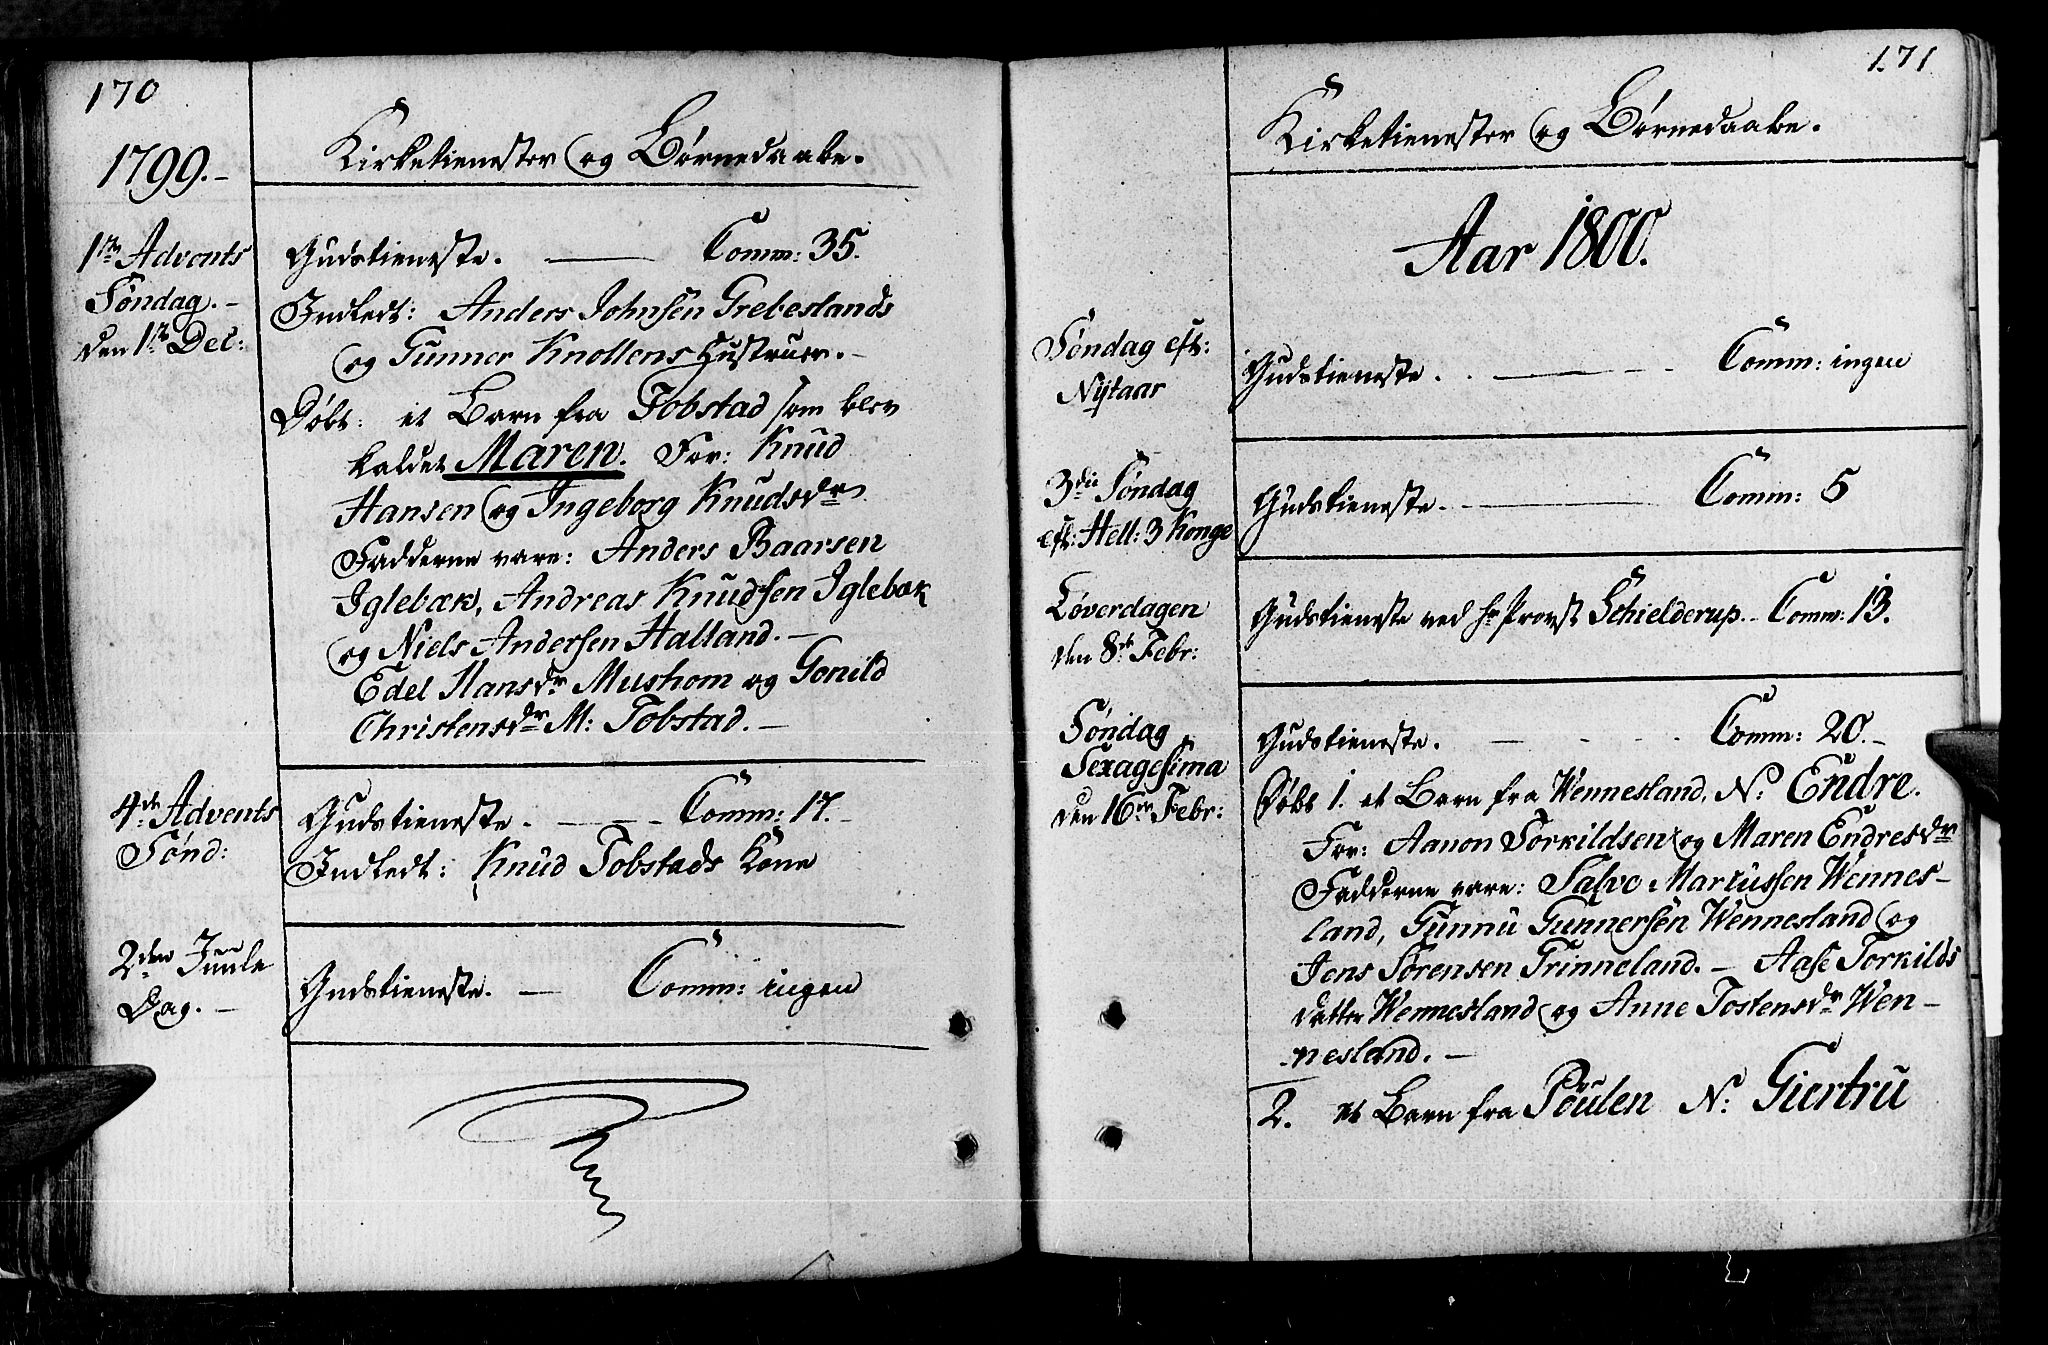 170
1799.-
Kirketienester og Børnedaabe.
1ste Advents
Søndag.-
den 1ste Dec:
Gudstieneste. — Comm: 35.
Indledt: Anders Johnsen Grebeslands
og Gunner Knollens Hustruer.-
Døbt: et Barn fra Tobstad som blev
kaldet Maren. For: Knud
Hansen og Ingeborg Knudsdr
Fadderne vare: Anders Baarsen
Iglebæk, Andreas Knudsen Iglebæk
og Niels Andersen Halland.-
Edel Hansdr Mushom og Gonild
Christensdr M: Tobstad.-
4de Advents
Sønd:
Gudstieneste. - — - Comm: 17.
Indledt: Knud Tobstads Kone
2den Juule
Dag.-
Gudstieneste. — Comm: ingen
171
Kirketienester og Børnedaabe.
Aar 1800.
Søndag eft:
Nytaar
Gudstieneste. - — - - Comm: ingen
3die Søndag
eft: Hell: 3 Konge
Gudstieneste. — Comm: 5
Løverdagen
den 8de Febr:
Gudstieneste ved Hr Provst Schielderup.- Comm: 13.
Søndag
Sexagesima
den 16de Febr:
Gudstieneste. — - - - Comm: 20.-
Døbt 1. et Barn fra Wennesland, N: Endre.
For: Aanon Torkildsen og Maren Endresdr
Fadderne vare: Salve Mariussen Wennes-
land, Gunnu Gunnersen Wennesland og
Jens Sørensen Trinneland. - Aase Torkilds
datter Wennesland og Anne Tostensdr Wen-
nesland.-
2. et Barn fra Poulen N: Giertru